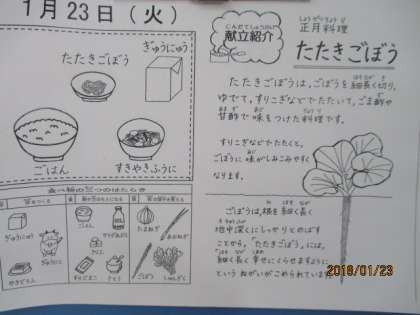 1月23日（火）
ぎゅうにゅう
たたきごぼう
ごはん
すきやきふうに
食べ物の三つのはたらき
ぎゅうにゅう
ごはん
さとう
たまねぎ
ごぼう
こんだてしょうかい
献立紹介
しょうがつりょうり
正月料理
たたきごぼう
たたきごぼうは、ごぼうを細長く切り、
ゆでて、すりこぎなどでたたいて、ごま酢や
甘酢で味をつけた料理です。
すりこぎなどでたたくと、
ごぼうに味がしみこみやすく
なります。
ごぼうは、根を細く長く
地中深くにしっかりとのばす
ことから、「たたきごぼう」には、
細く長く幸せにくらせますように
というねがいがこめられています
2018/01/23